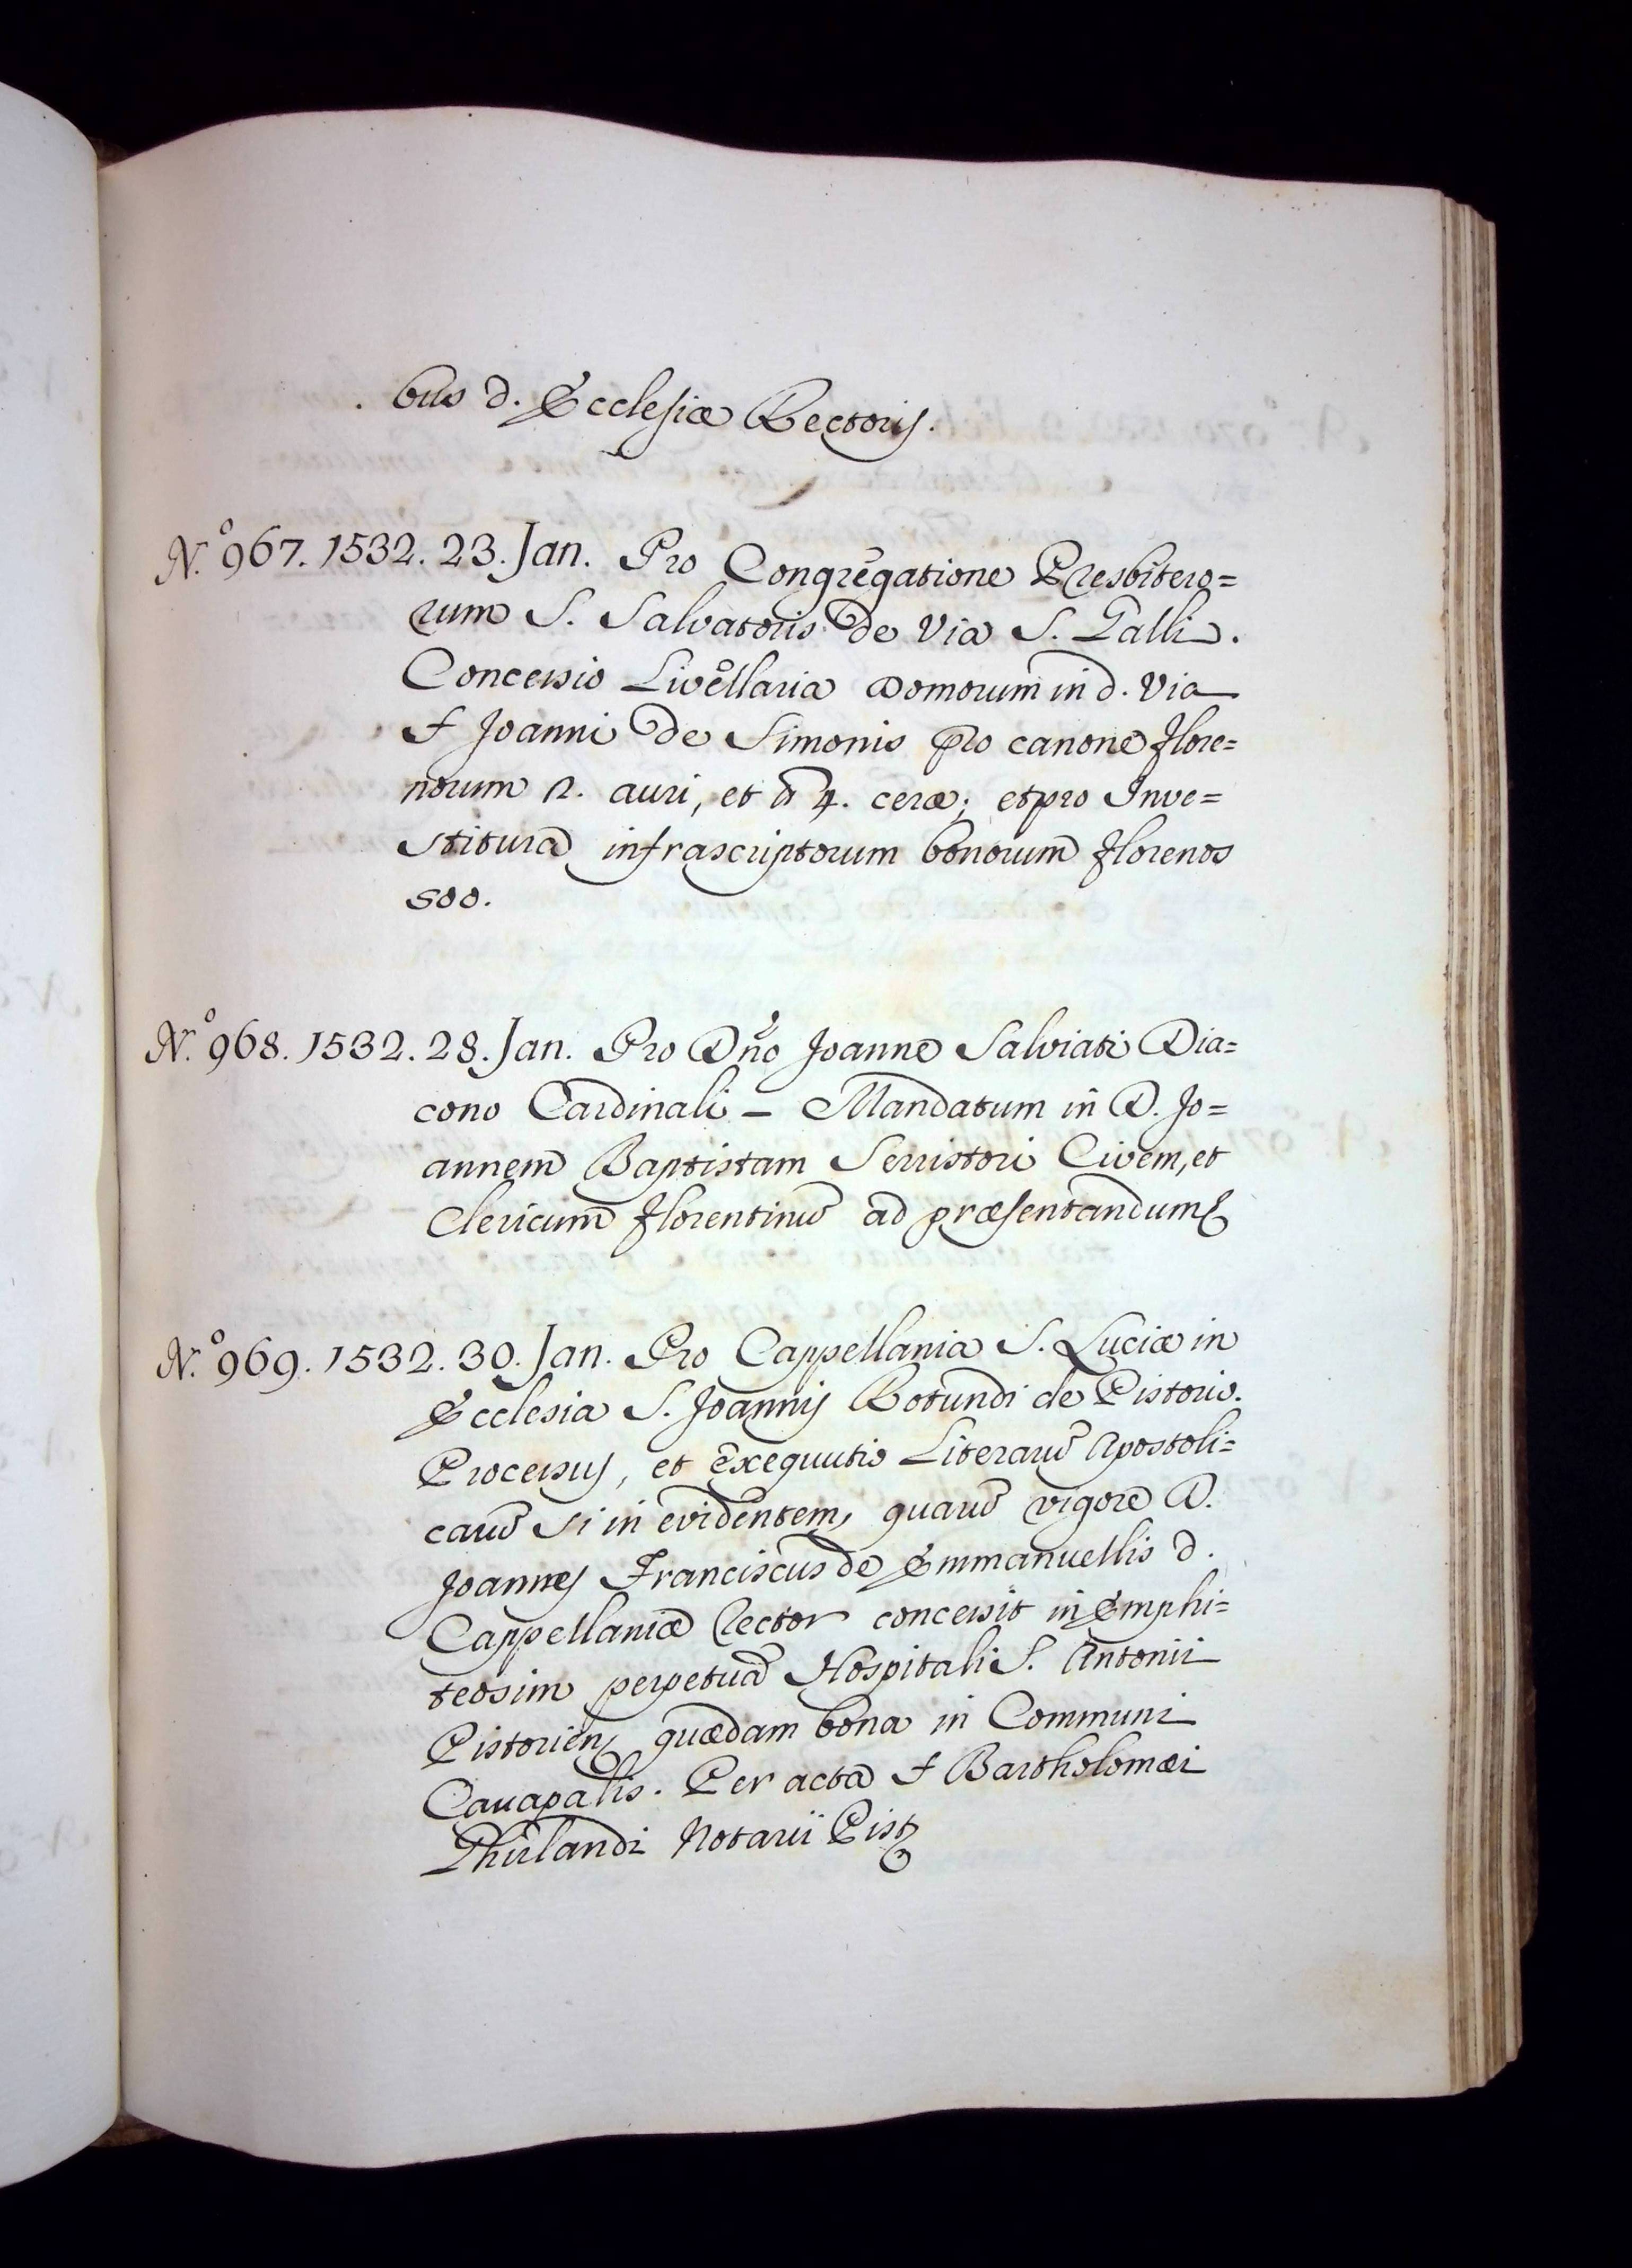 bus d. Ecclesiæ Rectoris.
N.º 967. 1532. 23. Jan. Pro Congregatione Presbitero=
rum S. Salvatoris de Via S. Galli.
Concessio Livellaria Domorum in d. Via
f Joanni de Simonis pro canone flore=
norum 2. auri, et ℔ 4. ceræ; et pro Inve=
stitura infrascriptorum bonorum florenos
500.
N.º 968. 1532. 28. Jan. Pro Dño Joanne Salviati Dia=
cono Cardinali – Mandatum in D. Jo=
annem Baptistam Serristori Civem, et
Clericum florentinũ ad præsentandum
N.º 969. 1532. 30. Jan. Pro Cappellania S. Luciæ in
Ecclesia S. Joannis Rotundi de Pistorio.
Processus, et exequutio Literarũ Apostoli=
carũ si in evidentem, quarũ vigore D.
Joannes Franciscus de Emmanuellis d.
Cappellaniæ Rector concessit in Emphi=
teosim perpetuã Hospitali S. Antonii
Pistorien quædam bona in Communi
Cavapalis. Per acta f Bartholomæi
Ghirlandi Notarii Pist